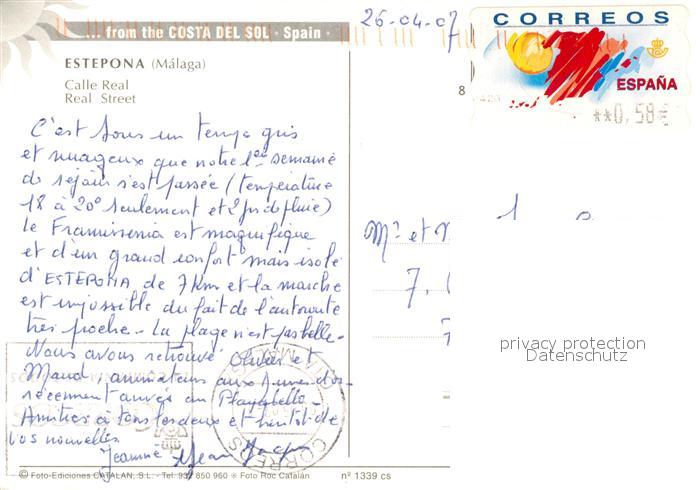 ... from the COSTA DEL SOL · Spain ·
26-04-07
CORREOS
ESPAÑA
**0,58€
ESTEPONA (Málaga)
Calle Real
Real Street
C'est sous un temps gris
et nuageux que notre 1ère semaine
de séjour s'est passée (température
18 à 20° seulement et 2 jrs de pluie)
le Framissenia est magnifique
et d'un grand confort mais isolé
d'ESTEPONA de 7km et la marche
est impossible du fait de l'autoroute
très proche - La plage n'est pas belle -
Nous avons retrouvé Olivier et
Maud, animateurs aux
récemment arrivés au Playabella -
Amitiés à tous les deux et bientôt de
vos nouvelles
Jeanne Jean
Mr et
7,
privacy protection
Datenschutz
CORREOS
© Foto-Ediciones CATALAN, S.L. - Tel. 937 850 960 ✳ Foto Roc Catalán nº 1339 cs